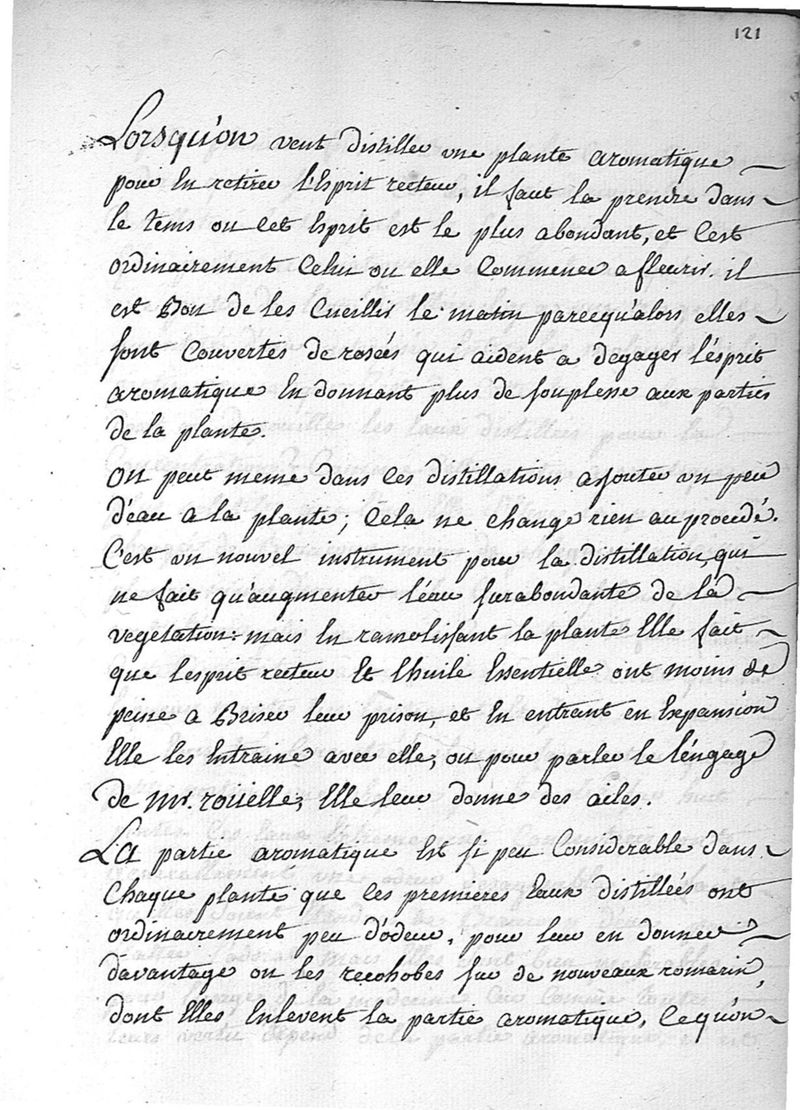 121
Lorsqu'on veut distiller une plante aromatique
pour En retirer l'Esprit recteur, il faut la prendre dans
le tems ou Cet Esprit est le plus abondant, et C'est
ordinairement Celui ou elle Commence a fleurir. il
est Bon de les Cueillir le matin parcequ'alors elles
sont Couvertes de rosées qui aident a degager l'esprit
aromatique En donnant plus de souplesse aux parties
de la plante.
on peut meme dans Ces distillations ajouter un peu
d'eau a la plante; Cela ne change rien au procedé.
C'est un nouvel instrument pour la distillation, qui
ne fait qu'augmenter l'eau surabondante de la
vegetation: mais En ramolissant la plante Elle fait
que l'esprit recteur Et l'huile Essentielle ont moins de
peine a Briser leur prison, et En entrant en Expansion
Elle les Entraine avec elle, ou pour parler le l'engage
de mr. roüelle, Elle leur donne des ailes.
La partie aromatique Est si peu Considerable dans
Chaque plante que Ces premieres Eaux distillées ont
ordinairement peu d'odeur, pour leur en donner
davantage on les recohobes sur de nouveaux romarin,
dont Elles Enlevent la partie aromatique, Ce qu'on